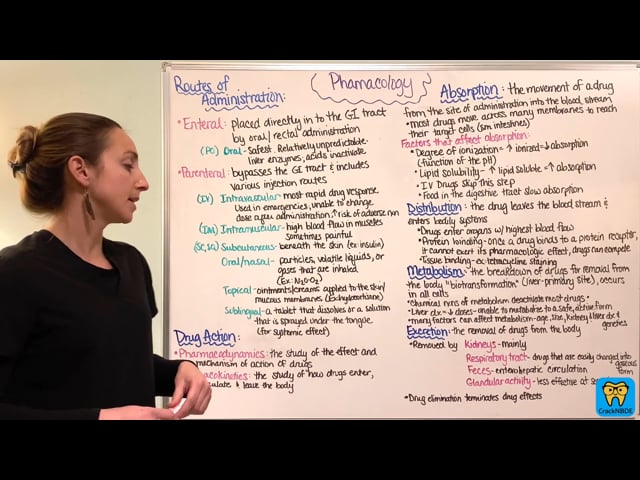 Phamacology
Routes of
Administration:
• Enteral: placed directly in to the GI tract
by oral/rectal administration
(PO) Oral - safest. Relatively unpredictable-
liver enzymes, acids inactivate.
• Parenteral: bypasses the GI tract & includes
various injection routes
(IV) Intravascular - most rapid drug response.
Used in emergencies, unable to change
dose after administration, ↑ risk of adverse rxn
(IM) Intramuscular - high blood flow in muscles
sometimes painful
(SC, SQ) Subcutaneous - beneath the skin (ex: insulin)
Oral/nasal - particles, volatile liquids, or
gases that are inhaled
(Ex: N₂O-O₂)
Topical - ointments/creams applied to the skin/
mucous membranes
Sublingual - a tablet that dissolves or a solution
that is sprayed under the tongue
(for systemic effect)
Drug Action:
• Pharmacodynamics: the study of the effect and
mechanism of action of drugs
the study of how drugs enter,
& leave the body
Absorption: the movement of a drug
from the site of administration into the blood stream
• most drugs move across many membranes to reach
their target cells (sm intestines)
Factors that affect absorption:
• Degree of ionization - ↑ ionized = ↓ absorption
(function of the pH)
• Lipid solubility - ↑ lipid soluble = ↑ absorption
• IV Drugs skip this step
• Food in the digestive tract slow absorption
Distribution: the drug leaves the blood stream &
enters bodily systems
• Drugs enter organs w/ highest blood flow
• Protein binding - once a drug binds to a protein receptor,
it cannot exert its pharmacologic effect, drugs can compete
• Tissue binding - ex: tetracycline staining
Metabolism: the breakdown of drugs for removal from
the body "biotransformation" (liver-primary site), occurs
in all cells
• Chemical rxns of metabolism deactivate most drugs.
• Liver dx = ↓ doses - unable to metabolize to a safe, active form
• many factors can affect metabolism - age, size, kidney & liver dx &
genetics
Excretion: the removal of drugs from the body
• Removed by Kidneys - mainly
Respiratory tract - drugs that are easily changed into
gaseous
form
Feces - enterohepatic circulation
Glandular activity - less effective at
• Drug elimination terminates drug effects
CrackNBDE